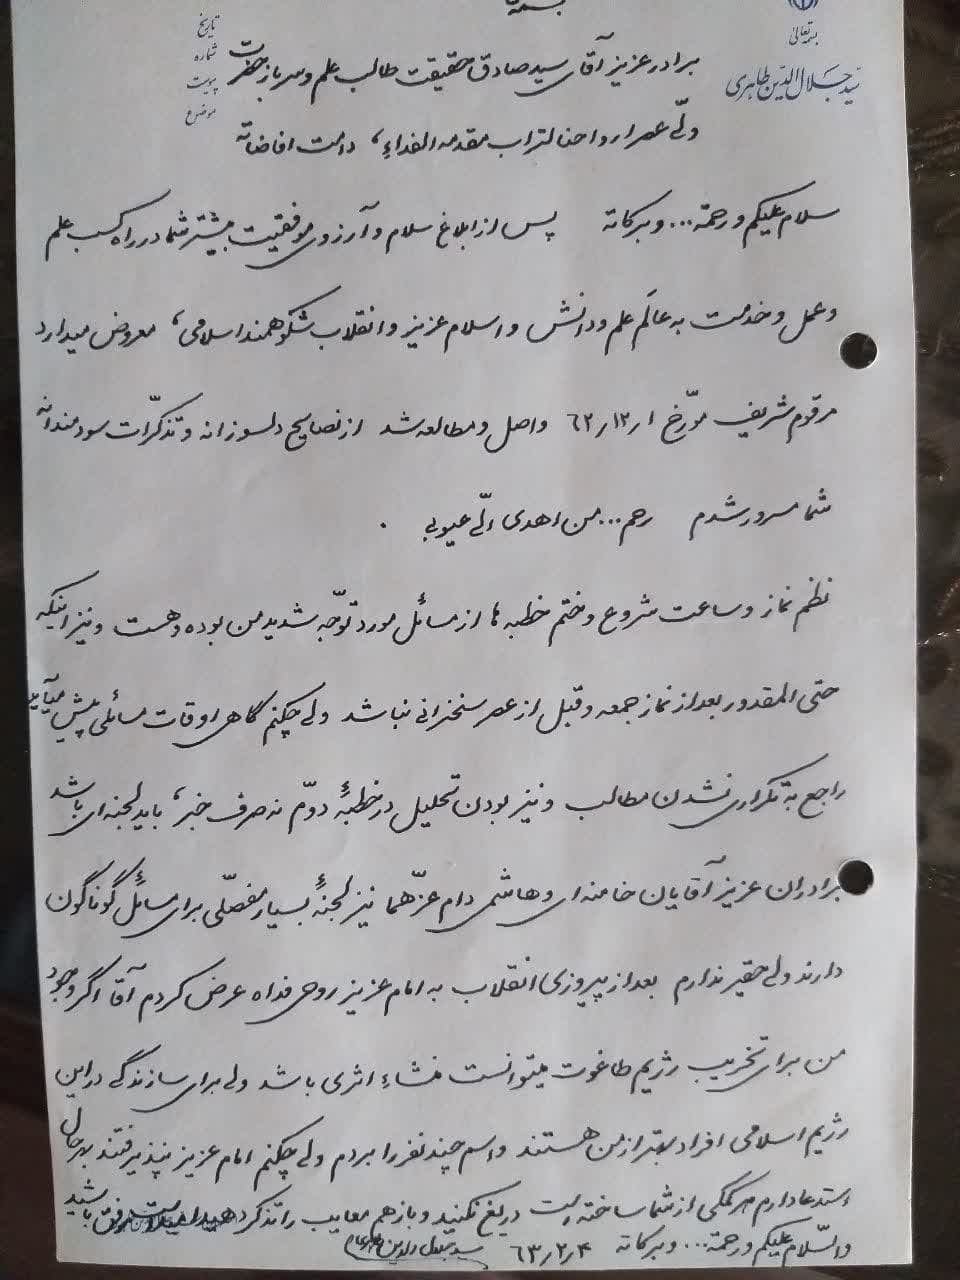 بسمه تعالی
سید جلال الدین طاهری
تاریخ
شماره
پیوست
موضوع
برادر عزیز آقای سید صادق حقیقت طالب علم و سرباز حضرت
ولّی عصر ارواحنا لتراب مقدمه الفداء، دامت افاضاته
سلام علیکم و رحمة... و برکاته پس از ابلاغ سلام و آرزوی موفقیت بیشتر شما در راه کسب علم
و عمل و خدمت به عالَم علم و دانش و اسلام عزیز و انقلاب شکوهمند اسلامی، معروض میدارد
مرقوم شریف مورّخ ۶۲٫۱۲٫۱ واصل و مطالعه شد از نصایح دلسوزانه و تذکّرات سودمندانه
شما مسرور شدم رحم... من اهدی الّی عیوبی.
نظم نماز و ساعت شروع و ختم خطبه ها از مسائل مورد توجّه شدید من بوده و هست و نیز اینکه
حتی المقدور بعد از نماز جمعه و قبل از عصر سخنرانی نباشد ولی چکنم گاهی اوقات مسائلی پیش میآید
راجع به تکراری نشدن مطالب و نیز بودن تحلیل در خطبهٔ دوّم نه صرف خبر، باید لجنه ای باشد
برادران عزیز آقایان خامنه ای و هاشمی دام عزّهما نیز لجنهٔ بسیار مفصّلی برای مسائل گوناگون
دارند ولی حقیر ندارم بعد از پیروزی انقلاب به امام عزیز روحی فداه عرض کردم آقا اگر وجود
من برای تخریب رژیم طاغوت میتوانست منشاء اثری باشد ولی برای سازندگی در این
رژیم اسلامی افراد بهتر از من هستند و اسم چند نفر را بردم ولی چکنم امام عزیز نپذیرفتند بهر حال
استدعا دارم هر کمکی از شما ساخته است دریغ نکنید و باز هم معایب را تذکر دهید موفق باشید
والسّلام علیکم و رحمة... و برکاته ۶۳٫۲٫۴
سید جلال الدین طاهری